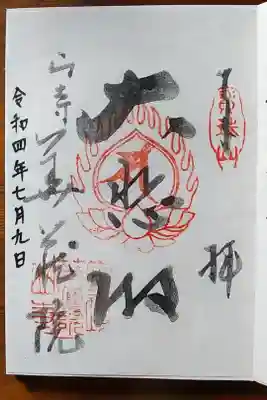 奉拝
寳珠山
大悲閣
山寺華蔵院
令和四年七月九日